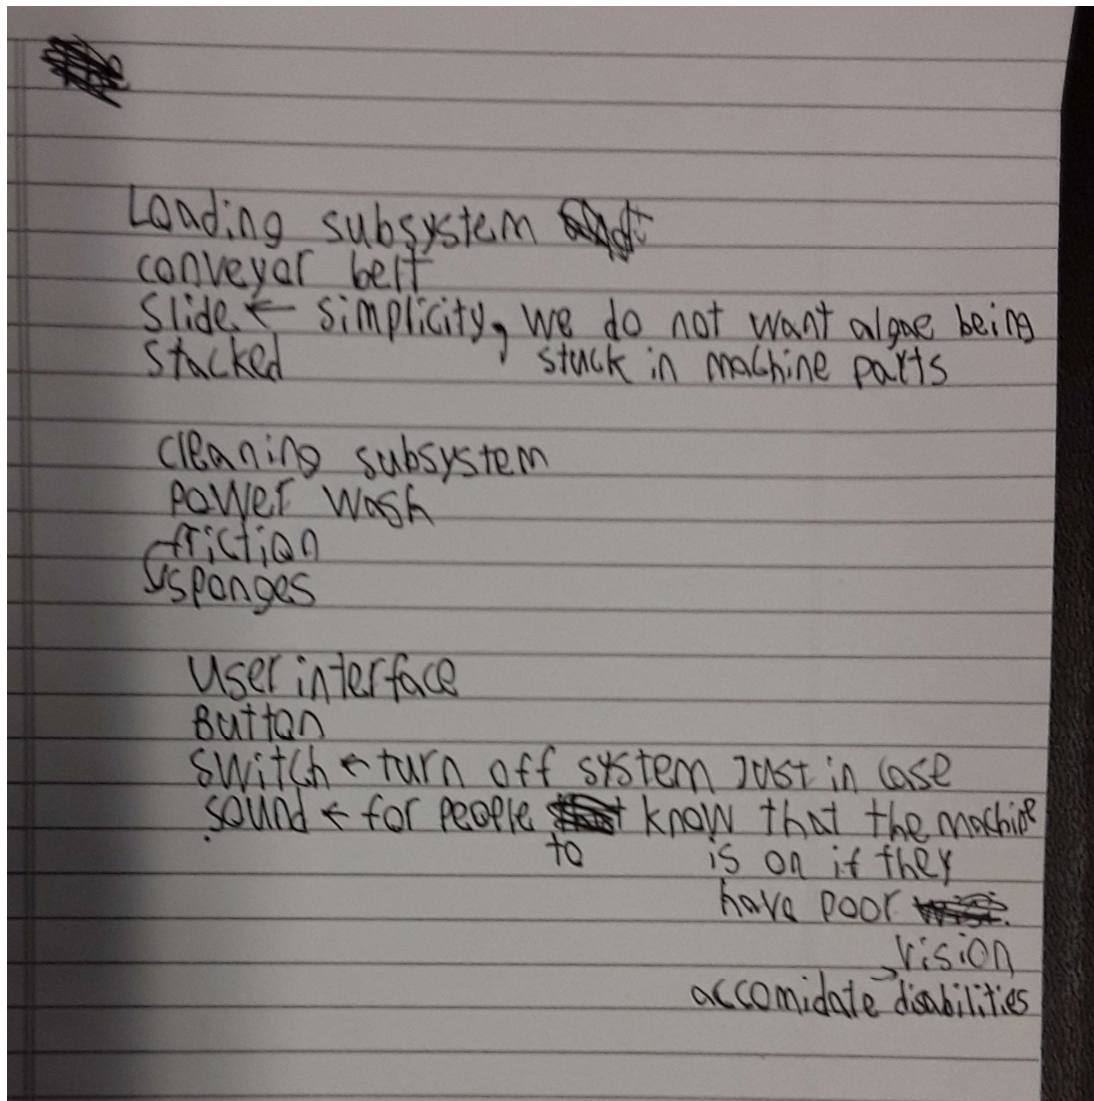 Loading subsystem
conveyor belt
Slide ← simplicity, we do not want algae being
Stacked stuck in machine parts
cleaning subsystem
power wash
friction
sponges
User interface
Button
Switch ← turn off system Just in case
sound ← for people know that the machine
to is on if they
have poor
vision
accomidate disabilities